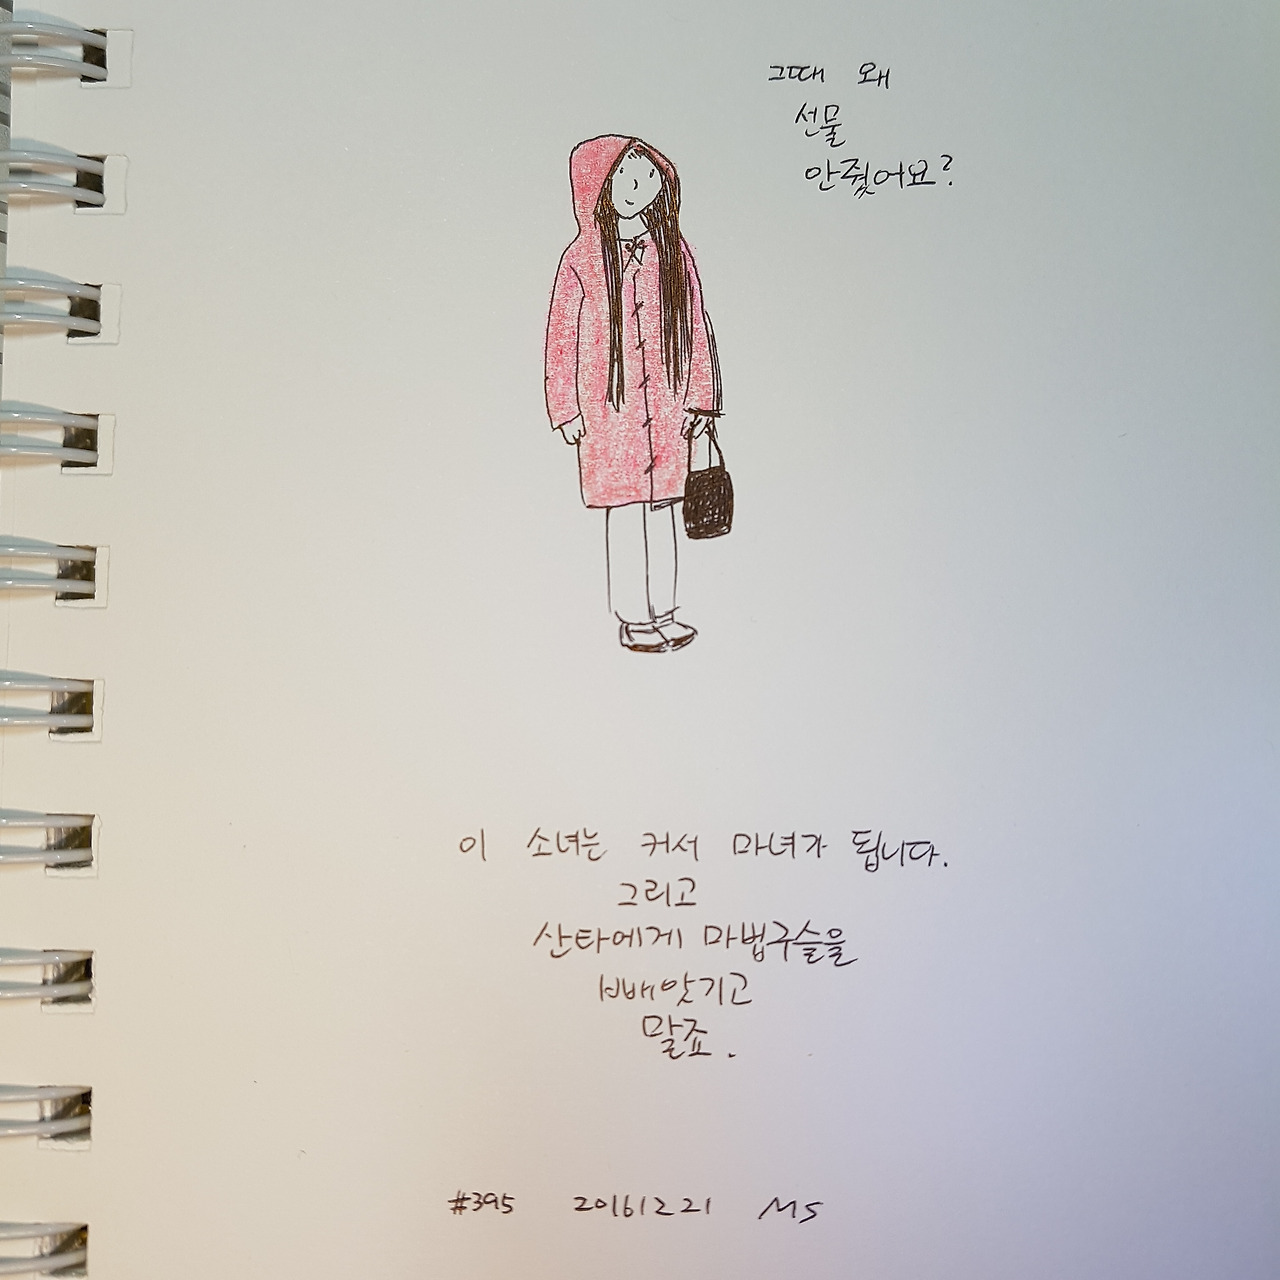 그때 왜
선물
안줬어요?
이 소녀는 커서 마녀가 됩니다.
그리고
산타에게 마법구슬을
빼앗기고
말죠.
#395 20161221 MS